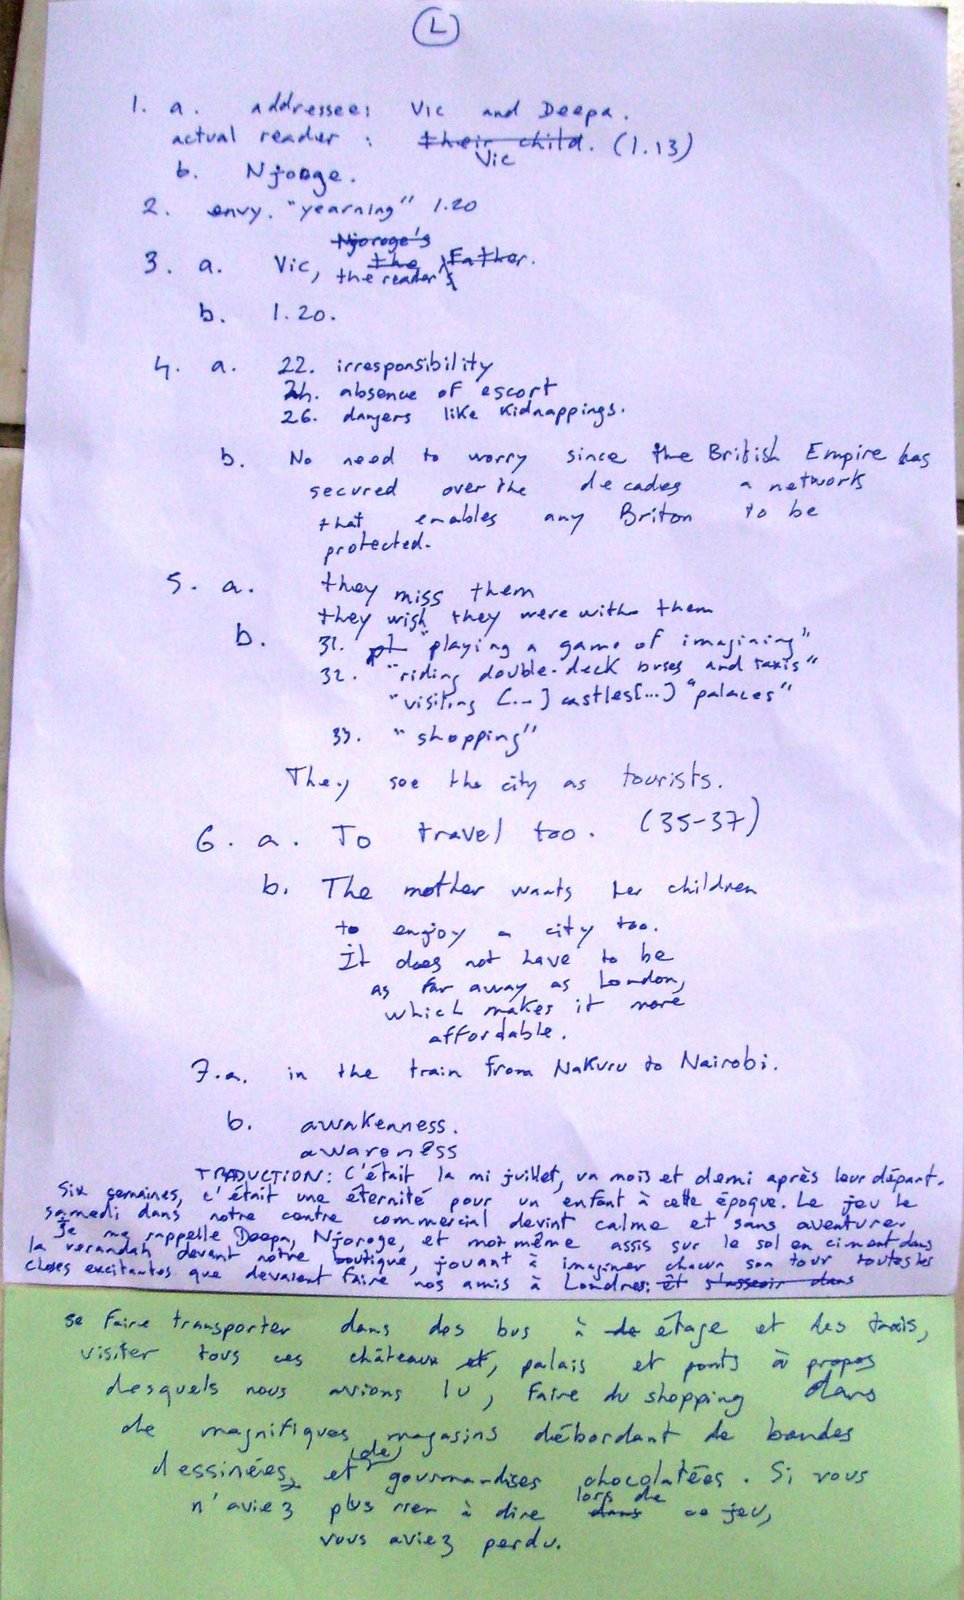 L
1. a. addressee: Vic and Deepa.
actual reader : their child. (l.13)
Vic
b. Njoroge.
2. envy. "yearning" l.20
Njoroge's
3. a. Vic, the Father.
the reader
b. l.20.
4. a. 22. irresponsibility
24. absence of escort
26. dangers like kidnappings.
b. No need to worry since the British Empire has
secured over the decades a network
that enables any Briton to be
protected.
5. a. they miss them
they wish they were with them
b. 31. pl "playing a game of imagining"
32. "riding double-deck buses and taxis"
"visiting [...] castles[...] "palaces"
33. "shopping"
They see the city as tourists.
6. a. To travel too. (35-37)
b. The mother wants her children
to enjoy a city too.
It does not have to be
as far away as London,
which makes it more
affordable.
7.a. in the train from Nakuru to Nairobi.
b. awakenness.
awareness
TRADUCTION: C'était la mi juillet, un mois et demi après leur départ.
Six semaines, c'était une éternité pour un enfant à cette époque. Le jeu le
samedi dans notre centre commercial devint calme et sans aventure,
je me rappelle Deepa, Njoroge, et moi même assis sur le sol en ciment dans
la verandah devant notre boutique, jouant à imaginer chacun son tour toutes les
choses excitantes que devaient faire nos amis à Londres: et s'asseoir dans
se faire transporter dans des bus à de étage et des taxis,
visiter tous ces châteaux et, palais et ponts à propos
desquels nous avions lu, faire du shopping dans
de magnifiques magasins débordant de bandes
dessinées, et (de) gourmandises chocolatées. Si vous
n'aviez plus rien à dire dans lors de ce jeu,
vous aviez perdu.